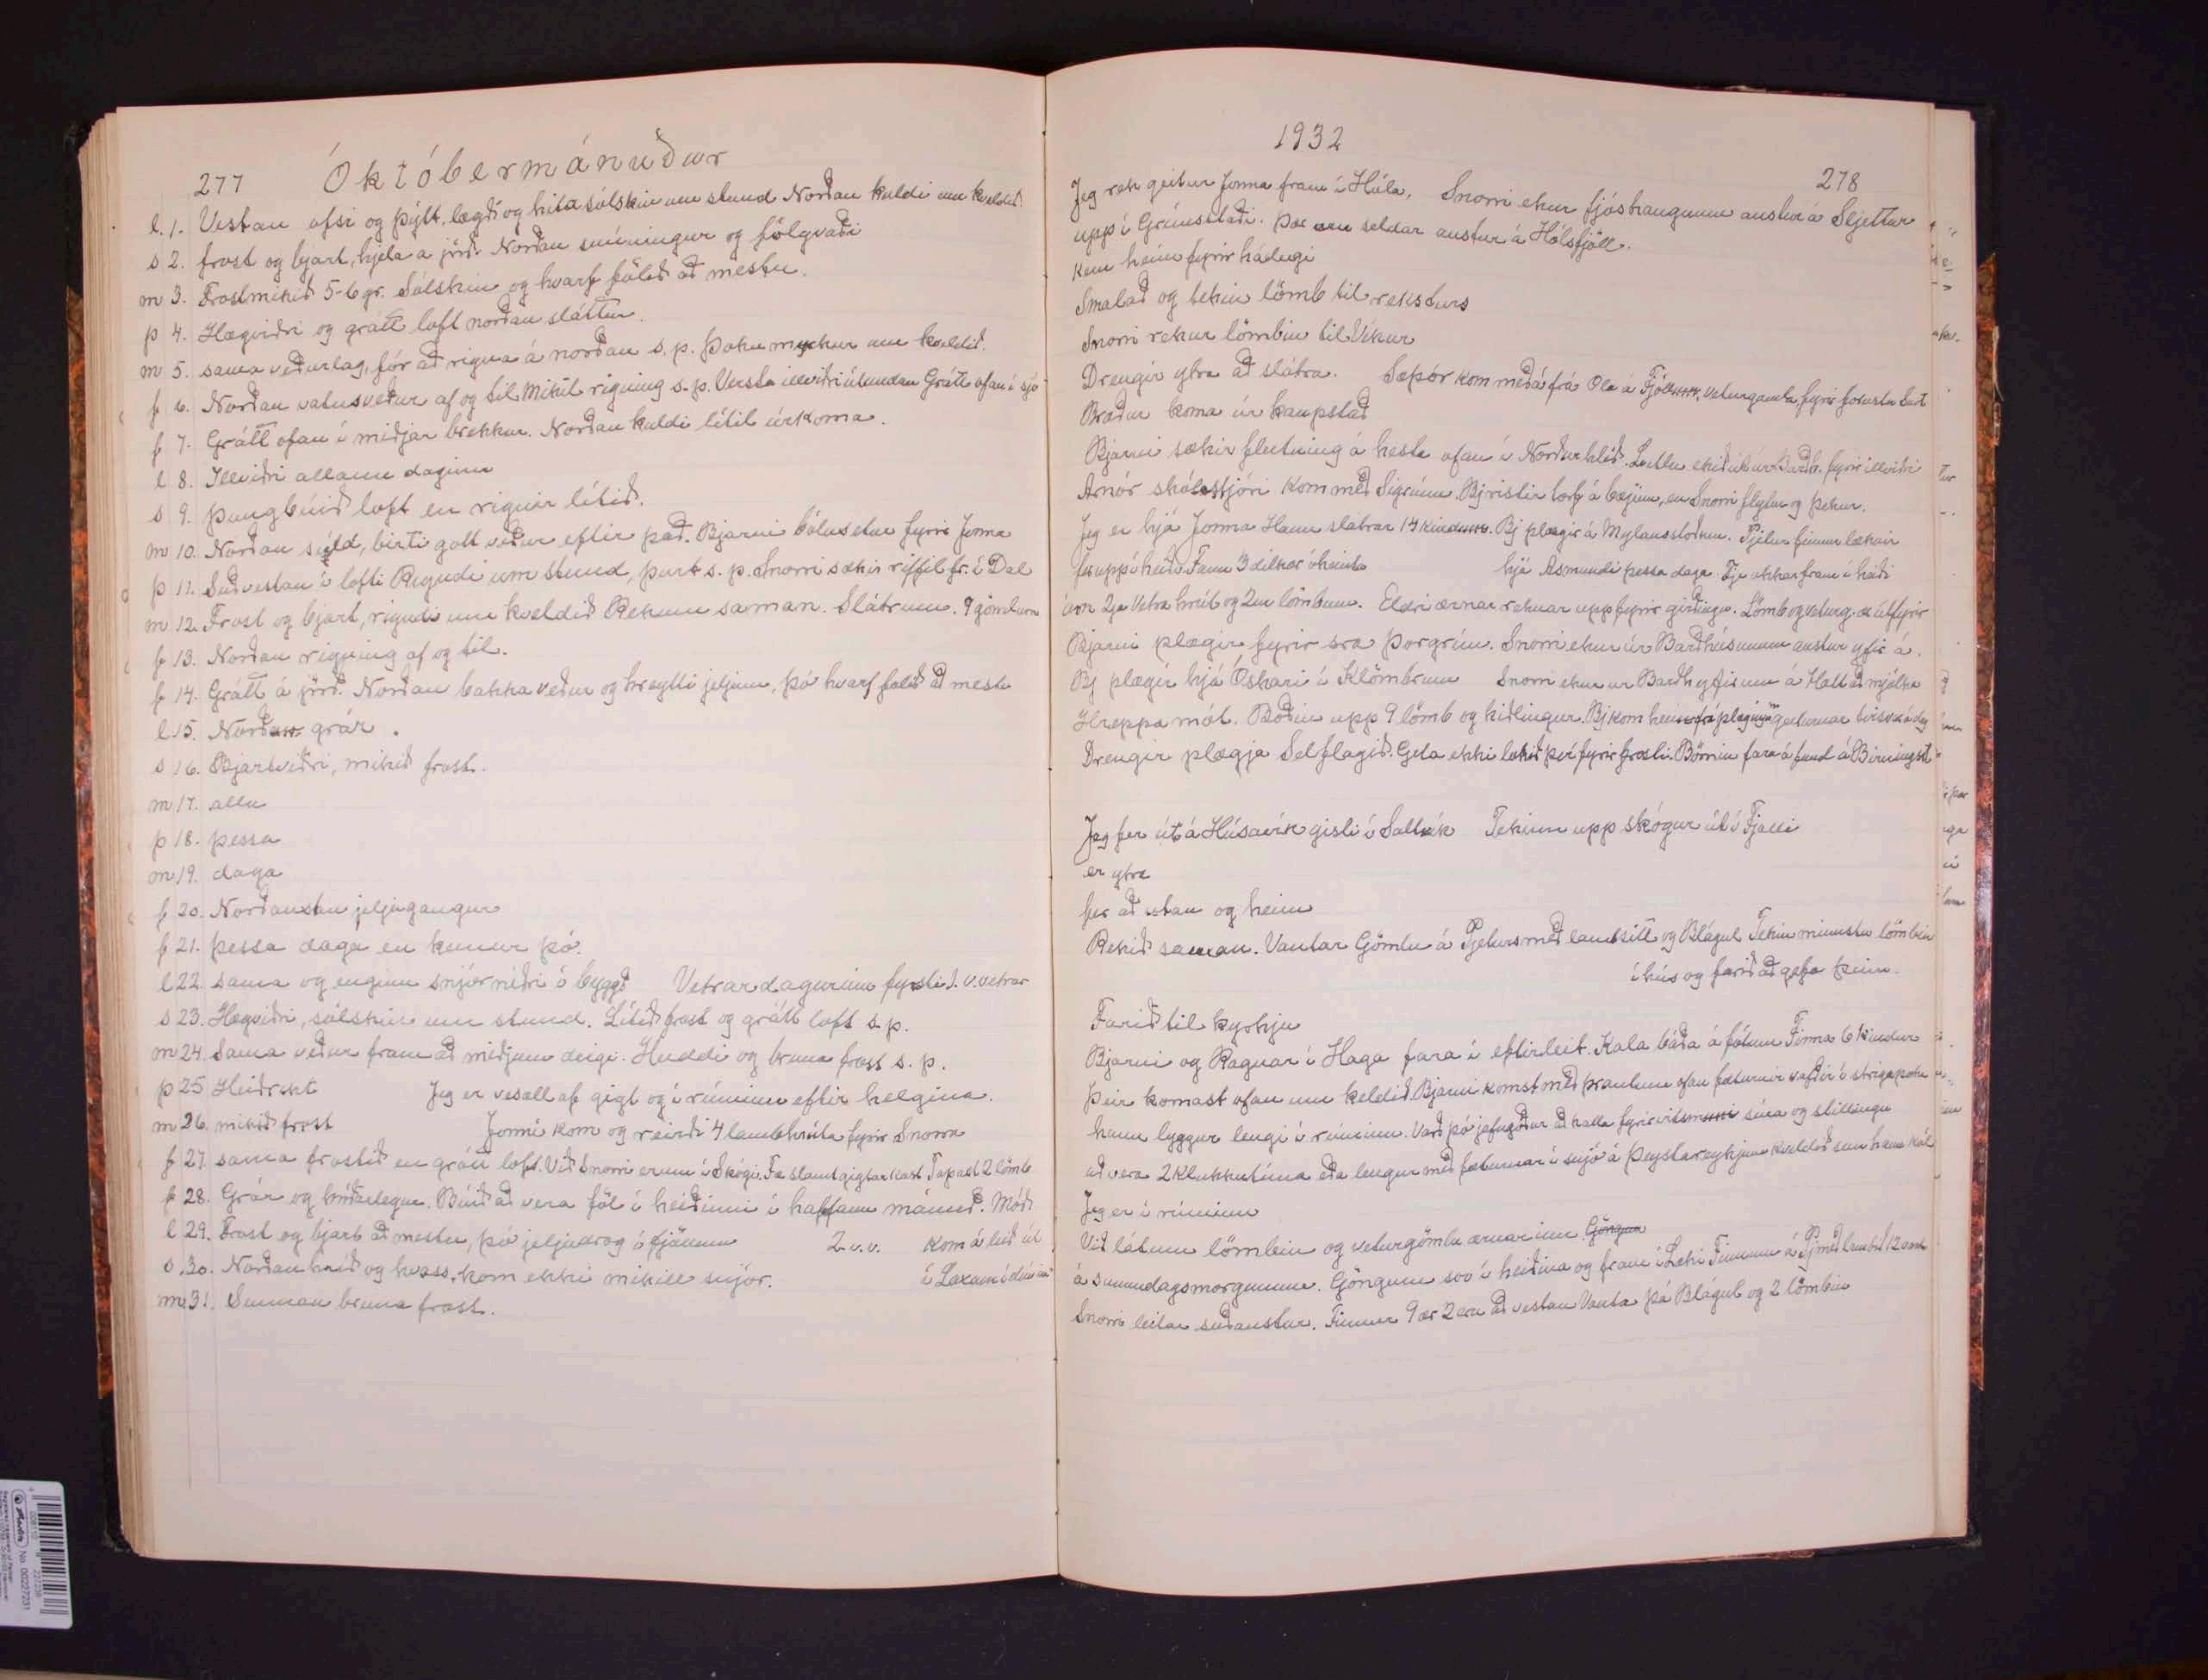 277 Októbermánuður
l. 1. Vestan ofsi og þýtt. lægði og hita sólskin um stund Norðan kuldi um kveldið
s 2. frost og bjart, hjela á jörð. Norðan snúningur og fölgvaði
m 3. Frostmikið 5-6 gr. Sólskin og hvarf fölið að mestu.
þ 4. Hægviðri og grátt loft norðan sláttur.
m 5. sama veðurlag, fór að rigna á norðan s.p. Þoku mykur um kveldið.
f 6. Norðan vatnsveður af og til Mikil rigning s.p. Versta illviðri útundan Grátt ofan í sjó
f 7. Grátt ofan í miðjar brekkur. Norðan kuldi lítil úrkoma.
l 8. Illviðri allann daginn
s 9. þungbúið loft en rignir lítið.
m 10. Norðan síld, birti gott veður eftir það. Bjarni bólusetur fyrir Jonna
þ 11. Suðvestan í lofti Rigndi um stund, þurt s.p. Snorri sækir riffil fr. í Dal
m 12. Frost og bjart, rigndi um kveldið Rekum saman. Slátrum. 9 gömlum
f 13. Norðan rigning af og til.
f 14. Grátt á jörð. Norðan bakka veður og hreytti jeljum, þó hvarf fölið að mestu
l 15. Norðan grár.
s 16. Bjartviðri, mikið frost.
m 17. alla
þ 18. þessa
m 19. daga
f 20. Norðaustan jeljagangur
f 21. þessa daga en kemur þó.
l 22. sama og enginn snjór niðri í byggð Vetrardagurinn fyrsti 1. v. vetrar
s 23. Hægviðri, sólskin um stund. Lítið frost og grátt loft s.p.
m 24. Sama veður fram að miðjum deigi. Kuldi og bruna frost s.p.
þ 25 Heiðrikt Jeg er vesæll af gigt og í rúminu eftir helgina.
m 26. mikið frost Jonni kom og reirði 4 lambhrúta fyrir Snorra
f 27. sama frostið en grátt loft. Við Snorri erum í Skógi. Fæ slæmt gigtarkast Tapast 2 lömb
f 28. Grár og hríðarlegur. Búið að vera föl í heiðinni í hálfann mánuð. Móð
l 29. Frost og bjart að mestu, þó jeljadrog í fjöllum 2 v.v. kom á leið út
s 30. Norðan hríð og hvass, kom ekki mikill snjór. í Laxamýri
m 31. Sunnan bruna frost.
1932
278
Jeg rek geitur Jonna fram í Hóla. Snorri ekur fjóshaugnum austur á Sljettur
upp í Grímsstaði. Þær eru seldar austur á Hólsfjöll.
Kem heim fyrir hádegi
Smalað og tekin lömb til reksturs
Snorri rekur lömbin til Víkur
Drengir ytra að slátra. Sæþór kom með á frá Óla á Fjöllum, veturgamla fyrir forustu
Bræður koma úr kaupstað
Bjarni sækir flutning á hesta ofan í Norðurhlíð. ekið út úr Barðh. fyrir illviðri
Arnór skólastjóri kom með Sigrúnu. Bj ristir torf á bæjinn, en Snorri flytur og þekur.
Jeg er hjá Jonna Hann slátrar 14 kindum. Bj plægir á Mylanesstöðum. Pjetur finnur læknir
fer upp í heiði Fann 3 dilkær óheimta hjá Asmundi þessa daga Fje okkar fram í heiði
2ja Vetra hrút og 2m lömbum. Eldri ærnar reknar upp fyrir girðingu. Lömb og veturg. æ útfyrir
Bjarni plægir fyrir sra Þorgrím. Snorri ekur úr Barðhúsunum austur yfir á.
Bj plægir hjá Óskari í Klömbrum Snorri ekur ur Barðh yfir um á Hall að mjólka
Hreppamót. Boðin upp 9 lömb og kiðlingur. Bj kom heim frá plæging geiturnar tvisvar á dag
Drengir plægja Selflagið. Geta ekki lokið því fyrir frosti. Börnin fara á fund á Birningsst
Jeg fer út á Húsavík gisti í Saltvík Tekinn upp skógur út í Fjalli
er ytra
fer að utan og heim
Rekið saman. Vantar Gömlu á Pjeturs með lambsitt og Blágul Tekin minnstu lömbin
í hús og farið að gefa þeim.
Farið til kyrkju
Bjarni og Ragnar í Haga fara í eftirleit. Kala báða á fótum Finna 6 kindur
Þeir komast ofan um keldið. Bjarni komst með þrautum ofan fæturnir vafðir í strigapoka
hann lyggur lengi í rúminu. Varð þó jafngóður að kalla fyrir vitsmuni sína og stillingu
að vera 2 klukkutíma eða lengur með fæturnar í snjó á Þeystareykjum kveldið sem hann kól
Jeg er í rúminu
Við látum lömbin og veturgömlu ærnar inn. Göngum
á sunnudagsmorgunnn. Göngum svo í heiðina og fram í Leki Finnum á Pj með lambið 12
Snorri leitar suðaustur. Finnur 9 ær 2 eru að vestan Vanta þá Blágul og 2 lömbin